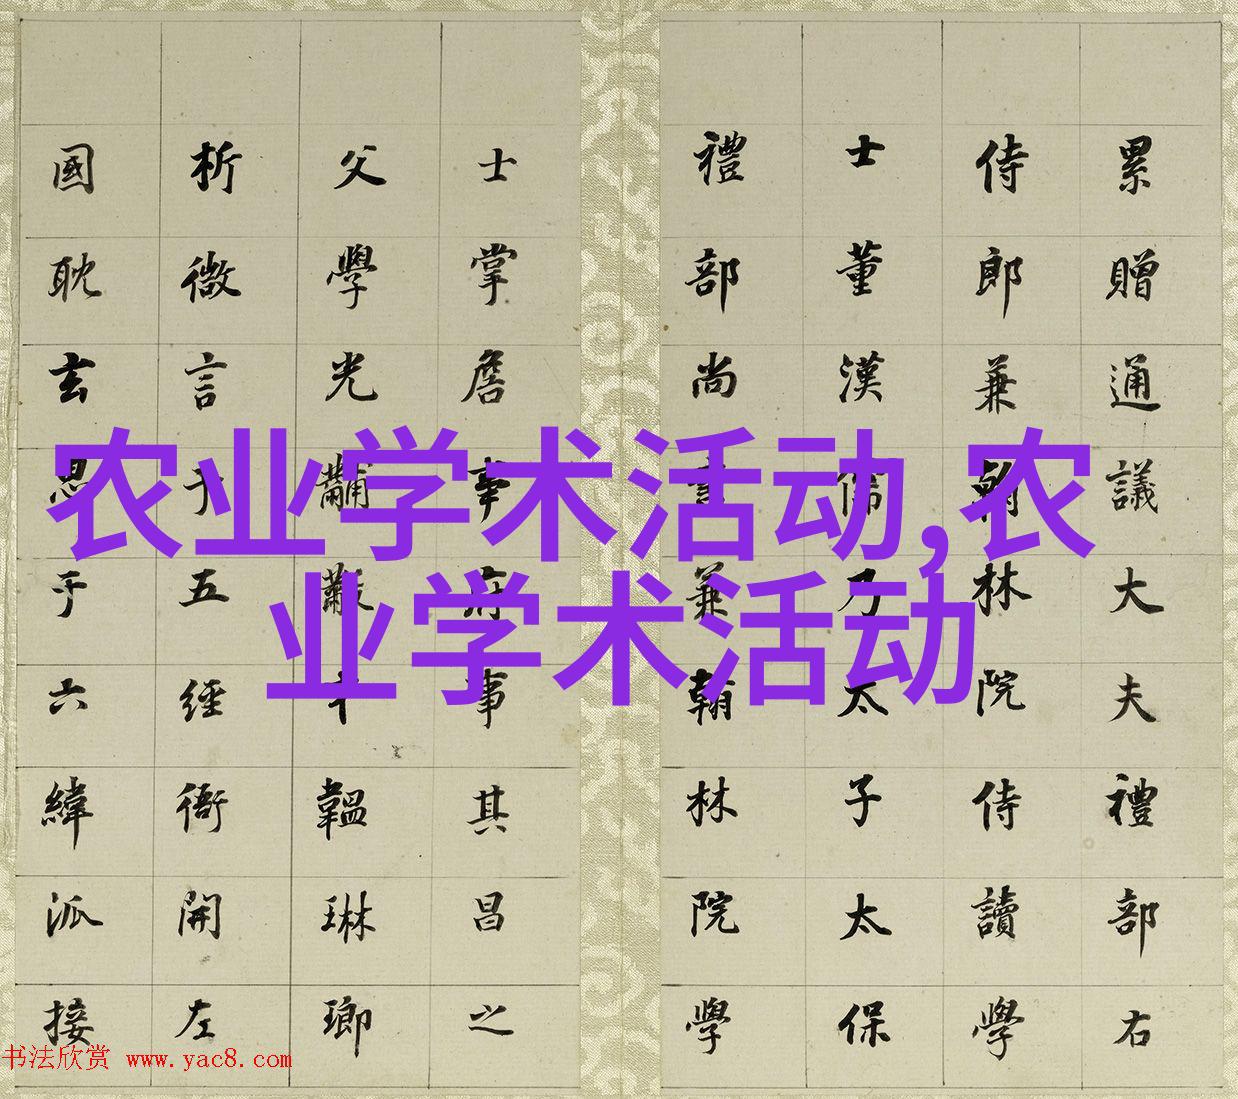 累贈通議大夫禮部右
侍郎兼翰林院侍讀學
士董漢儒乃太子太保
禮部尚書兼翰林院學
士掌詹事府事其昌之
父學光黼黻韞琳瑯
析微言于五經衙開左
國耽玄思于六緯派接
农业学术活动,农
业学术活动
书法欣赏 www.yac8.com